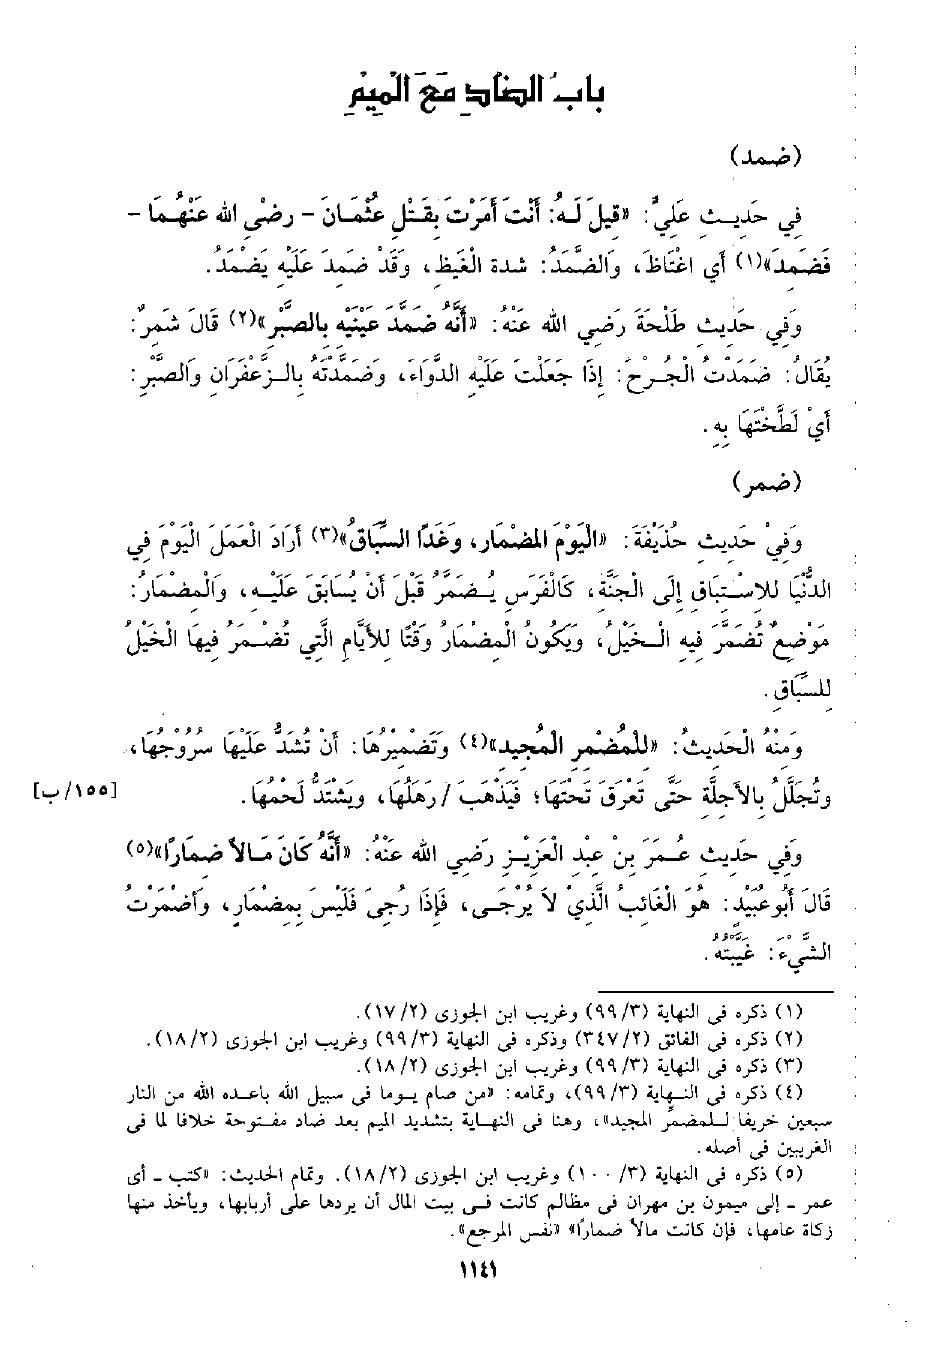 بابُ الضاد مَعَ الْمِيْمِ
(ضمد)
فِي حَدِيثِ عَلِيٍّ: «قِيلَ لَهُ: أَنْتَ أَمَرْتَ بِقَتْلِ عُثْمَانَ - رضْى الله عَنْهُمَا -
فَضَمِدَ»(١) أي اغْتَاظَ، وَالضَّمَدُ: شدة الْغَيظِ، وَقَدْ ضَمِدَ عَلَيْهِ يضْمَدُ.
وَفِي حَدِيثِ طَلْحَةَ رَضِي الله عَنْهُ: «أَنَّهُ ضَمَّدَ عَيْنَيْهِ بالصَّبْرِ»(٢) قَالَ شَمِرٌ:
يُقَالُ: ضَمَدْتُ الْجُرحَ: إذَا جَعَلْتَ عَلَيْهِ الدَّوَاءَ، وَضَمَّدْتَهُ بِالزعْفَرَانِ وَالصَّبْرِ:
أَيْ لَطَّخْتَهَا بِهِ.
(ضمر)
وَفِيْ حَدِيثِ حُذَيْفَةَ: «الْيَوْمَ المِضْمَار، وَغَدًا السِّبَاقُ»(٣) أَرَادَ الْعَمَلَ الْيَوْمَ فِي
الدُّنْيَا للاسْتِبَاقِ إلَى الْجَنَّةِ، كَالْفَرَسِ يُضَمَّرُ قَبْلَ أَنْ يُسَابَقَ عَلَيْهِ، وَالْمِضْمَارُ:
مَوْضِعٌ تُضَمَّرَ فِيهِ الْخَيْلُ، وَيَكُونُ الْمِضْمَارُ وَقْتًا لِلأَيَّامِ الَّتِي تُضْمَرُ فِيهَا الْخَيْلُ
لِلسِّبَاقِ.
وَمِنْهُ الْحَدِيثُ: «لِلْمُضْمِرِ الْمُجِيدِ»(٤) وَتَضْمِيرُهَا: أَنْ تُشَدَّ عَلَيْهَا سُرُوْجُهَا،
وتُجَلَّلُ بِالأَجِلَّةِ حَتَّى تَعْرَقَ تَحْتَهَا؛ فَيَذْهَب / رَهَلُهَا، وَيشْتَدُّ لَحْمُهَا.
[١٥٥/ ب]
وَفِي حَدِيثِ عُمَرَ بنْ عبد الْعَزِيزِ رَضِي الله عَنْهُ: «أَنَّهُ كَانَ مَالاً ضِمَارًا»(٥)
قَالَ أَبُو عُبَيْدٍ: هُوَ الْغَائبُ الَّذِيْ لاَ يُرْجَى، فَإذَا رُجِىَ فَلَيْسَ بِضمَارٍ، وَأضْمَرْتُ
الشَّيْءَ: غَيَّبْتُهُ.
(١) ذكره فى النهاية (٩٩/٣) وغريب ابن الجوزى (١٧/٢).
(٢) ذكره فى الفائق (٣٤٧/٢) وذكره فى النهاية (٩٩/٣) وغريب ابن الجوزى (١٨/٢).
(٣) ذكره فى النهاية (٩٩/٣) وغريب ابن الجوزى (١٨/٢).
(٤) ذكره فى النهاية (٩٩/٣)، وتمامه: «من صام يوما فى سبيل الله باعده الله من النار
سبعين خريفا للمضمَّر المجيد»، وهنا فى النهاية بتشديد الميم بعد ضاد مفتوحة خلافا لما فى
الغريبين فى أصله.
(٥) ذكره فى النهاية (١٠٠/٣) وغريب ابن الجوزى (١٨/٢). وتمام الحديث: «كتب ـ أى
عمر ـ إلى ميمون بن مهران فى مظالم كانت فى بيت المال أن يردها على أربابها، ويأخذ منها
زكاة عامها، فإن كانت مالاً ضمارًا» «نفس المرجع».
١١٤١